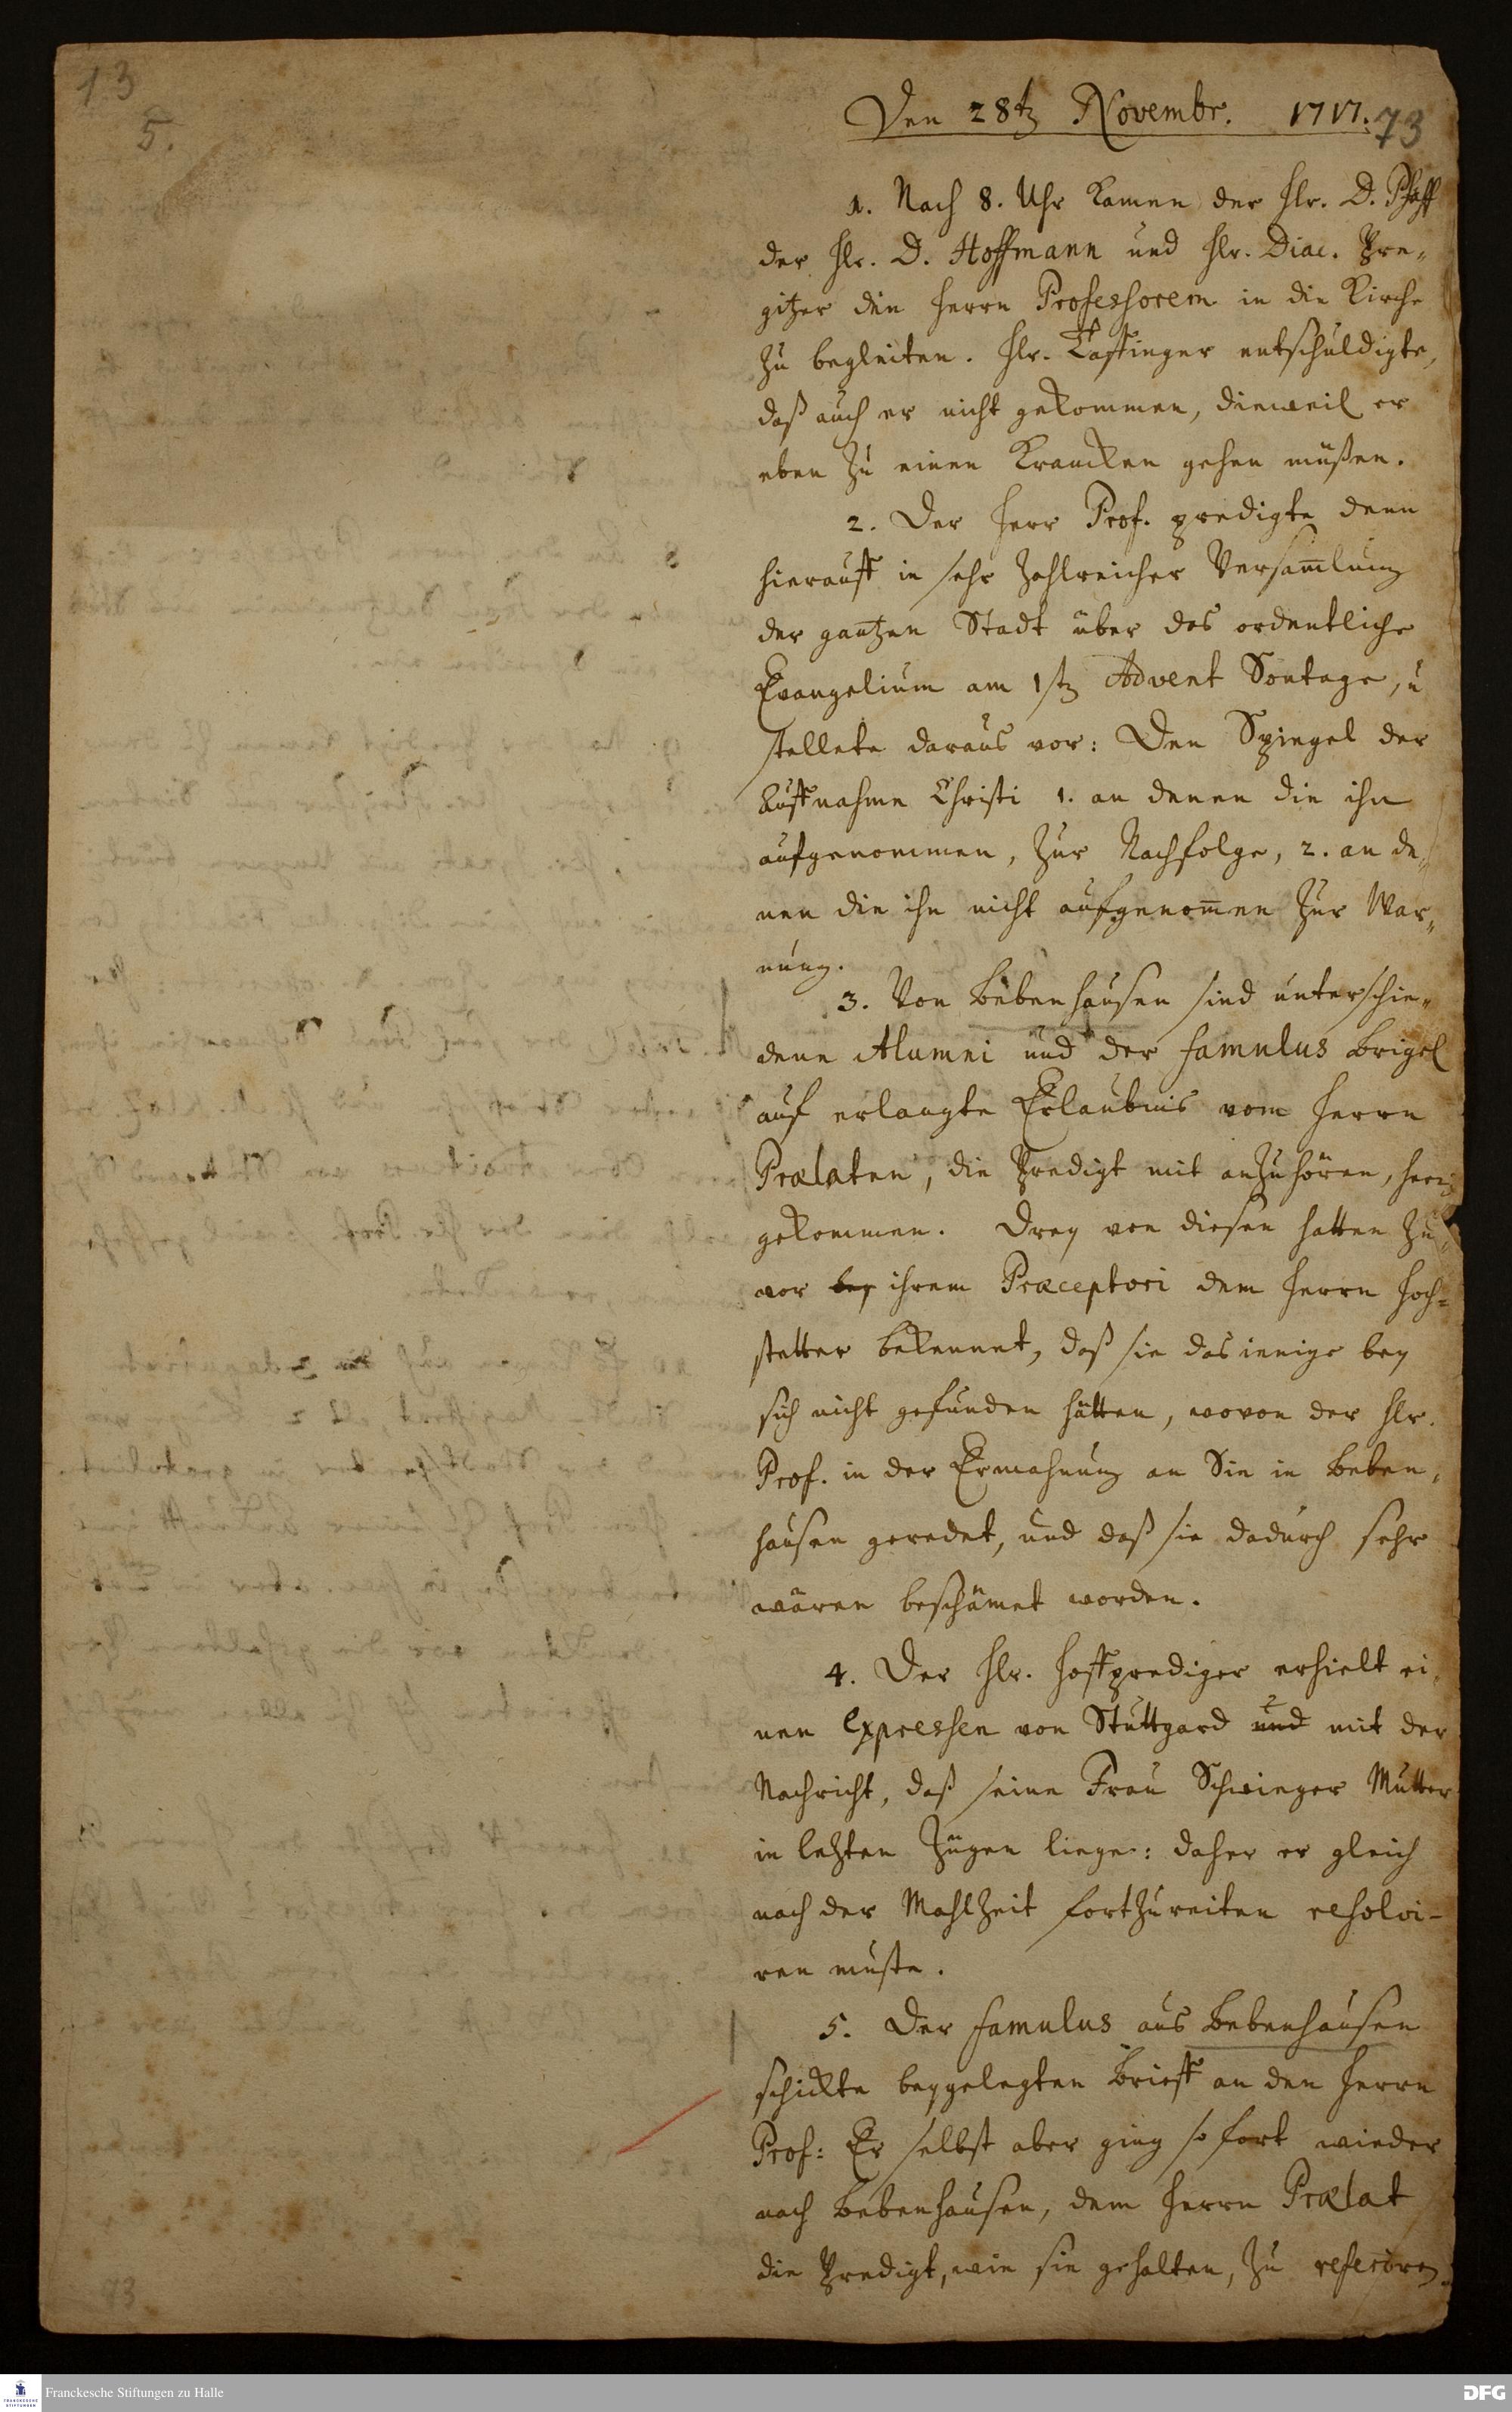 13
5.
Den 28t. Novembr. 1717. 73
1. Nach 8. Uhr kamen der Hr. D. Pfaff
der Hr. D. Hoffmann und Hr. Diac. Pre„
gitzer den Herrn Professorem in die Kirche
zu begleiten. Hr. entschuldigte,
daß auch er nicht gekommen, dieweil er
eben zu einen Krancken gehen müßen.
2. Der Herr Prof. predigte denn
hierauff in sehr zahlreicher Versam̄lung
der gantzen Stadt über das ordentliche
Evangelium am 1st. Advent Sontage, u
stellete daraus vor: Den Spiegel der
Auffnahme Christi 1. an denen die ihn
aufgenommen, zur Nachfolge, 2. an de„
nen die ihn nicht aufgenom̄en zur War„
nung.
3. Von Bebenhausen sind unterschie„
dene Alumni und der famulus Brigel
auf erlangte Erlaubnis vom Herrn
Prælaten, die Predigt mit anzuhören, herein
gekommen. Drey von diesen hatten zu„
vor bey ihrem Præceptori dem Herrn Hoch=
stetter bekennet, daß sie das ienige bey
sich nicht gefunden hätten, wovon der Hr.
Prof. in der Ermahnung an Sie in Beben„
hausen geredet, und daß sie dadurch sehr
wären beschämet worden.
4. Der Hr. Hoffprediger erhielt ei„
nen Expressen von Stuttgard und mit der
Nachricht, daß seine Frau Schwieger Mutter
in letzten Zügen liege: daher er gleich
nach der Mahlzeit fortzureiten resolvi-
ren muste.
5. Der famulus aus Bebenhausen
schickte beygelegten Brieff an den Herrn
Prof: Er selbst aber ging so fort wieder
nach Bebenhausen, dem Herrn Prælat
die Predigt, wie sie gehalten, zu referiren.
73
Franckesche Stiftungen zu Halle
DFG